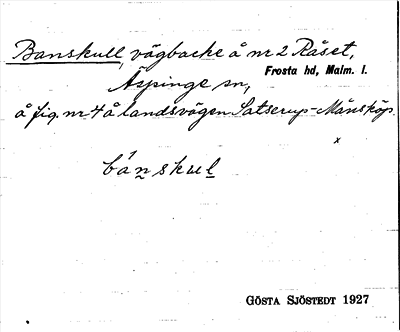 Banskull, vägbacke å nr 2 Råset,
Äspinge sn,
Frosta hd, Malm. l.
å fig. nr 4 å landsvägen Satserup-Månsköp.
x
bánskul
GÖSTA SJÖSTEDT 1927